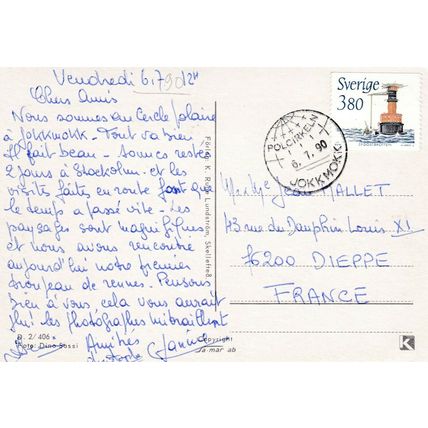 Vendredi 6.7.90 12H
Chers Amis
Nous sommes au Cercle polaire
à JOKKMOKK - Tout va bien
Il fait beau - Sommes restés
2 jours à Stockolm - et les
visites faites en route font que
le temps a passé vite - Les
paysages sont magnifiques
et nous avons rencontré
aujourd'hui notre premier
troupeau de rennes. Pensons
bien à vous cela vous aurait
plu: les photographes mitraillent
Amitiés
D. 2/406
Foto: Dino Sassi
Förlag K. Rune Lundström, Skellefteå
Copyright
Ja-mar ab
POLCIRKELN
6. 7. 90
JOKKMOKK
Sverige
380
Mr et Mme Jean MALLET
43 rue du Dauphin Louis XI
76200 DIEPPE
FRANCE
K